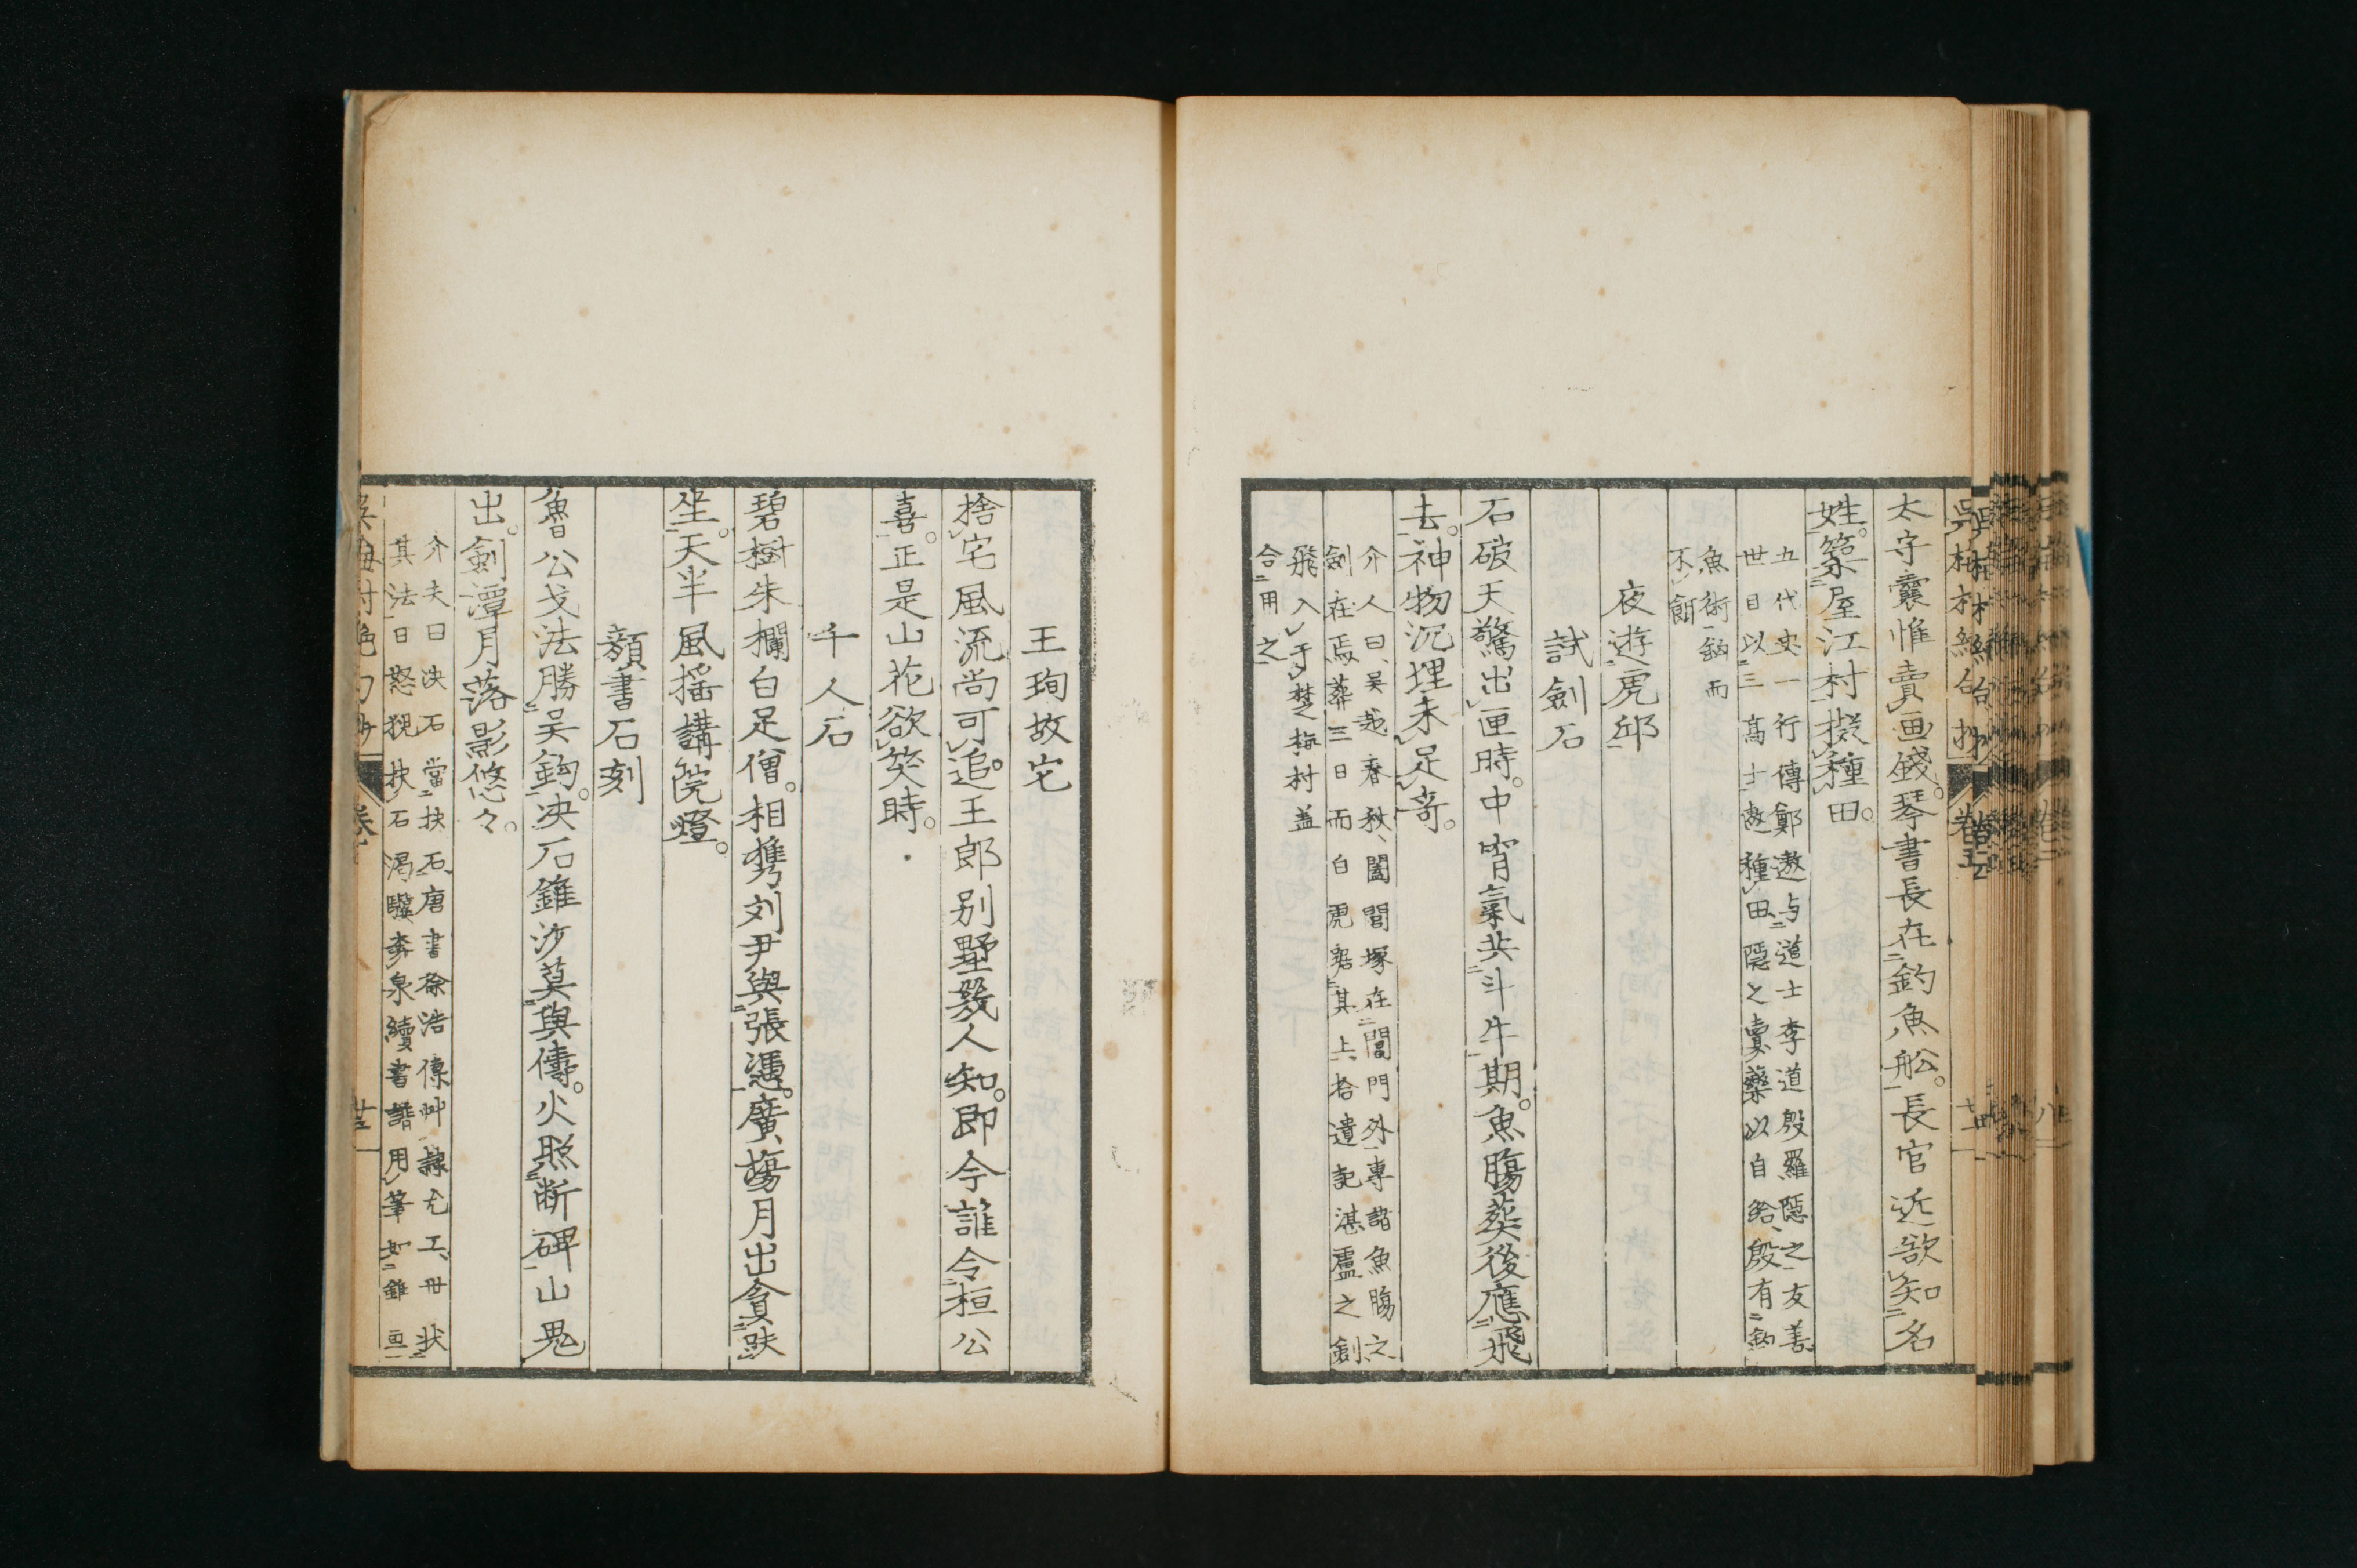 太守囊惟賣画錢。琴書長在釣魚舩。長官近欲知名
姓。築屋江村擬種田。
五代史一行傳鄭遨与道士李道殷羅隱之友善
世目以三高士遨種田隱之賣藥以自給殷有釣
魚術鈎而
不餌
夜遊虎邱
試劍石
石破天驚出匣時。中宵氣共斗牛期。魚膓葬後應飛
去。神物沉埋未足竒。
介人曰、吴越春秋、闔閭塚在閶門外、專諸魚膓之
劍在焉葬三日而白虎踞其上、拾遺記湛盧之劍
飛入于楚梅村盖
合用之
王珣故宅
捨宅風流尚可追。王郎别墅㡬人知。即今誰令桓公
喜。正是山花欲笑時。
千人石
碧樹朱欄白足僧。相携刘尹與張憑。廣塲月出貪趺
坐。天半風揺講院燈。
顔書石刻
魯公戈法勝吴鈎。决石錐沙莫與儔。火照断碑山鬼
出。劍潭月落影悠々。
介夫曰决石當抉石、唐書徐浩傳艸隷尤工、世状
其法曰怒猊抉石渇驥奔泉續書譜用筆如錐画